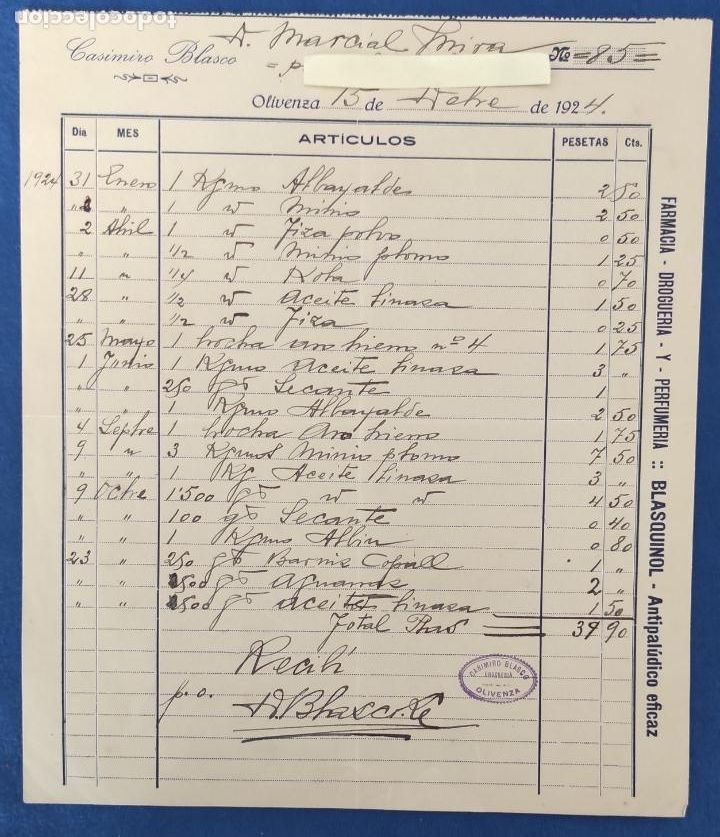 todocoleccion
Casimiro Blasco
D. Marcial
Nº = 85 =
Olivenza 15 de Dcbre de 1924.
Dia MES ARTÍCULOS PESETAS Cts.
1924 31 Enero 1 Kgmo Albayalde 2 50
" " 1 id Minio 2 50
2 Abril 1 id Tiza polvo 0 50
" " 1/2 id Minio plomo 1 25
11 " 1/4 id Kola 0 70
28 " 1/2 id Aceite linaza 1 50
" " 1/2 id Tiza 0 25
25 Mayo 1 brocha aro hierro nº 4 1 75
1 Junio 1 Kgmo aceite linaza 3 "
" " 250 gs Secante 1
" " 1 Kgmo Albayalde 2 50
4 Septre 1 brocha Aro hierro 1 75
9 " 3 Kgmos Minio plomo 7 50
" " 1 Kg Aceite linaza 3 "
9 Ocbre 1'500 gs id id 4 50
" " 100 gs Secante 0 40
" " 1 Kgmo Albin 0 80
23 " 250 gs Barniz Copall 1 "
" " 500 gs Aguarras 2 "
" " 500 gs aceite linaza 1 50
Total Ptas 39 90
Recibí
p.o.
CASIMIRO BLASCO
DROGUERIA
OLIVENZA
FARMACIA - DROGUERIA - Y - PERFUMERIA :: BLASQUINOL - Antipalúdico eficaz